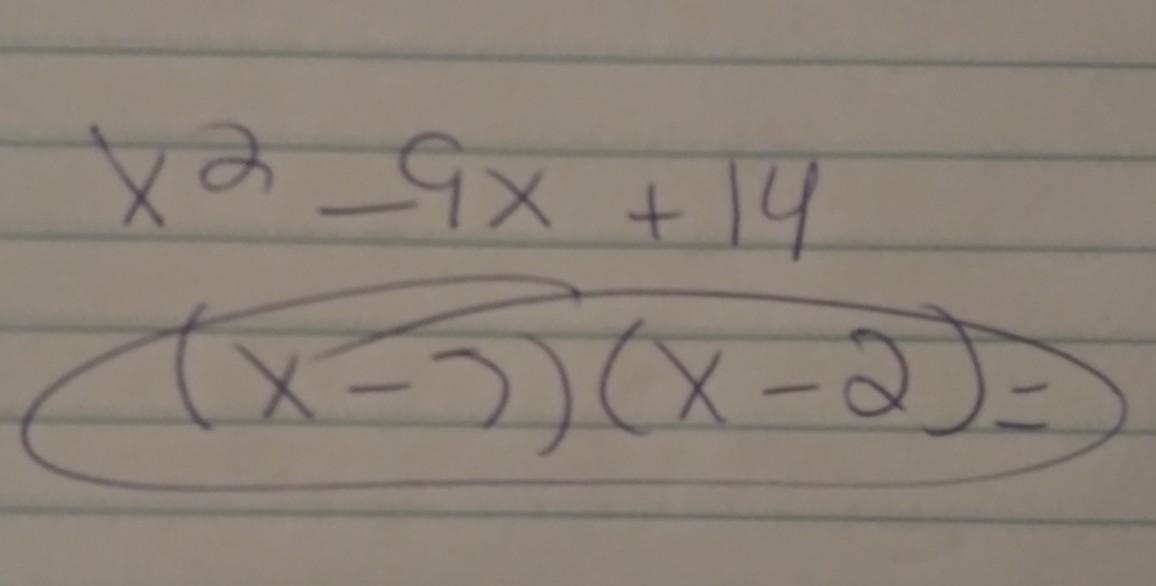 x² - 9x + 14
(x - 7)(x - 2) =